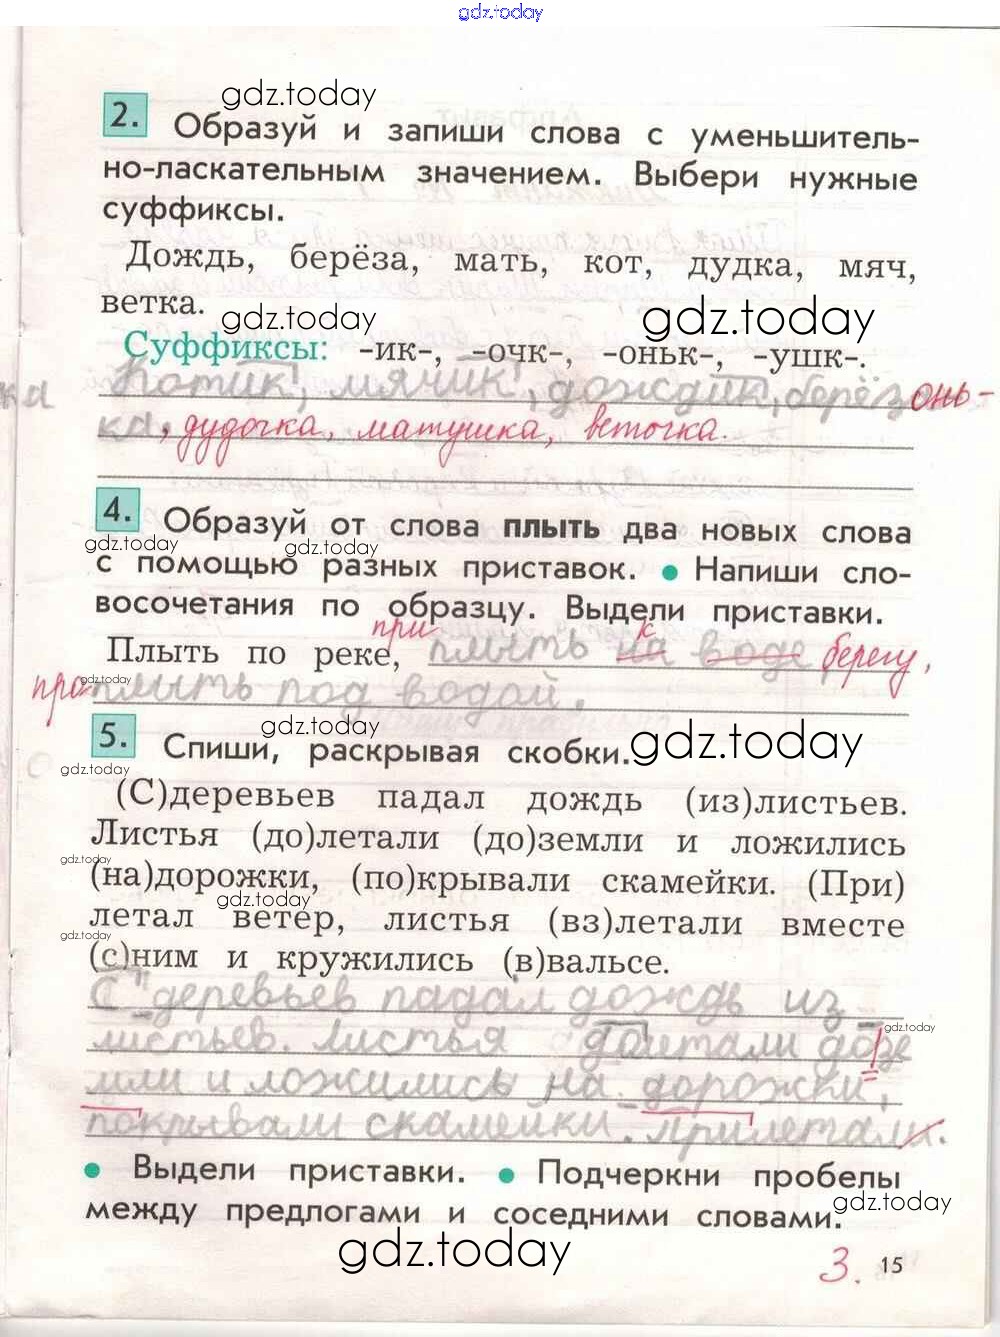 gdz.today
gdz.today
2. Образуй и запиши слова с уменьшитель-
но-ласкательным значением. Выбери нужные
суффиксы.
Дождь, берёза, мать, кот, дудка, мяч,
ветка.
gdz.today gdz.today
Суффиксы: -ик-, -очк-, -оньк-, -ушк-.
ка Котик, мячик, дождик, берёзонь-
ка, дудочка, матушка, веточка.
4. Образуй от слова плыть два новых слова
gdz.today gdz.today
с помощью разных приставок. ● Напиши сло-
восочетания по образцу. Выдели приставки.
при к
Плыть по реке, плыть на воде берегу,
gdz.today
проплыть под водой.
gdz.today gdz.today
5. Спиши, раскрывая скобки.
gdz.today
(С)деревьев падал дождь (из)листьев.
Листья (до)летали (до)земли и ложились
gdz.today
(на)дорожки, (по)крывали скамейки. (При)
gdz.today
летал ветер, листья (вз)летали вместе
gdz.today
(с)ним и кружились (в)вальсе.
С деревьев падал дождь из
gdz.today
листьев. Листья долетали дозе
мли и ложились на дорожки,
покрывали скамейки. Прилетали.
● Выдели приставки. ● Подчеркни пробелы
gdz.today
между предлогами и соседними словами.
gdz.today
3. 15